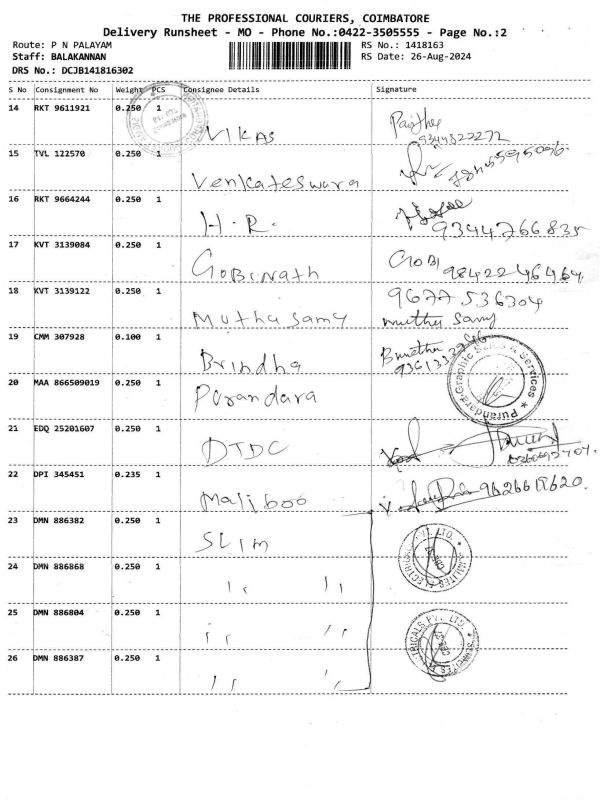 THE PROFESSIONAL COURIERS, COIMBATORE
Delivery Runsheet - MO - Phone No.:0422-3505555 - Page No.:2
Route: P N PALAYAM
RS No.: 1418163
Staff: BALAKANNAN
RS Date: 26-Aug-2024
DRS No.: DCJB141816302
S No Consignment No Weight PCS Consignee Details Signature
14 RKT 9611921 0.250 1 VIKAS
9344822272
15 TVL 122570 0.250 1 Venkateswara
16 RKT 9664244 0.250 1 H.R.
9344766835
17 KVT 3139084 0.250 1 GOBINATH GOBI
9842246464
18 KVT 3139122 0.250 1 Muthusamy 9677536304
muthu Samy
19 CMM 307928 0.100 1 Brindha
20 MAA 866509019 0.250 1 Purandara
Purandara Graphic Sales & Services
21 EDQ 25201607 0.250 1 DTDC
22 DPI 345451 0.235 1 Maliboo
23 DMN 886382 0.250 1 SLIM
24 DMN 886868 0.250 1 " "
25 DMN 886804 0.250 1 " "
26 DMN 886387 0.250 1 " "